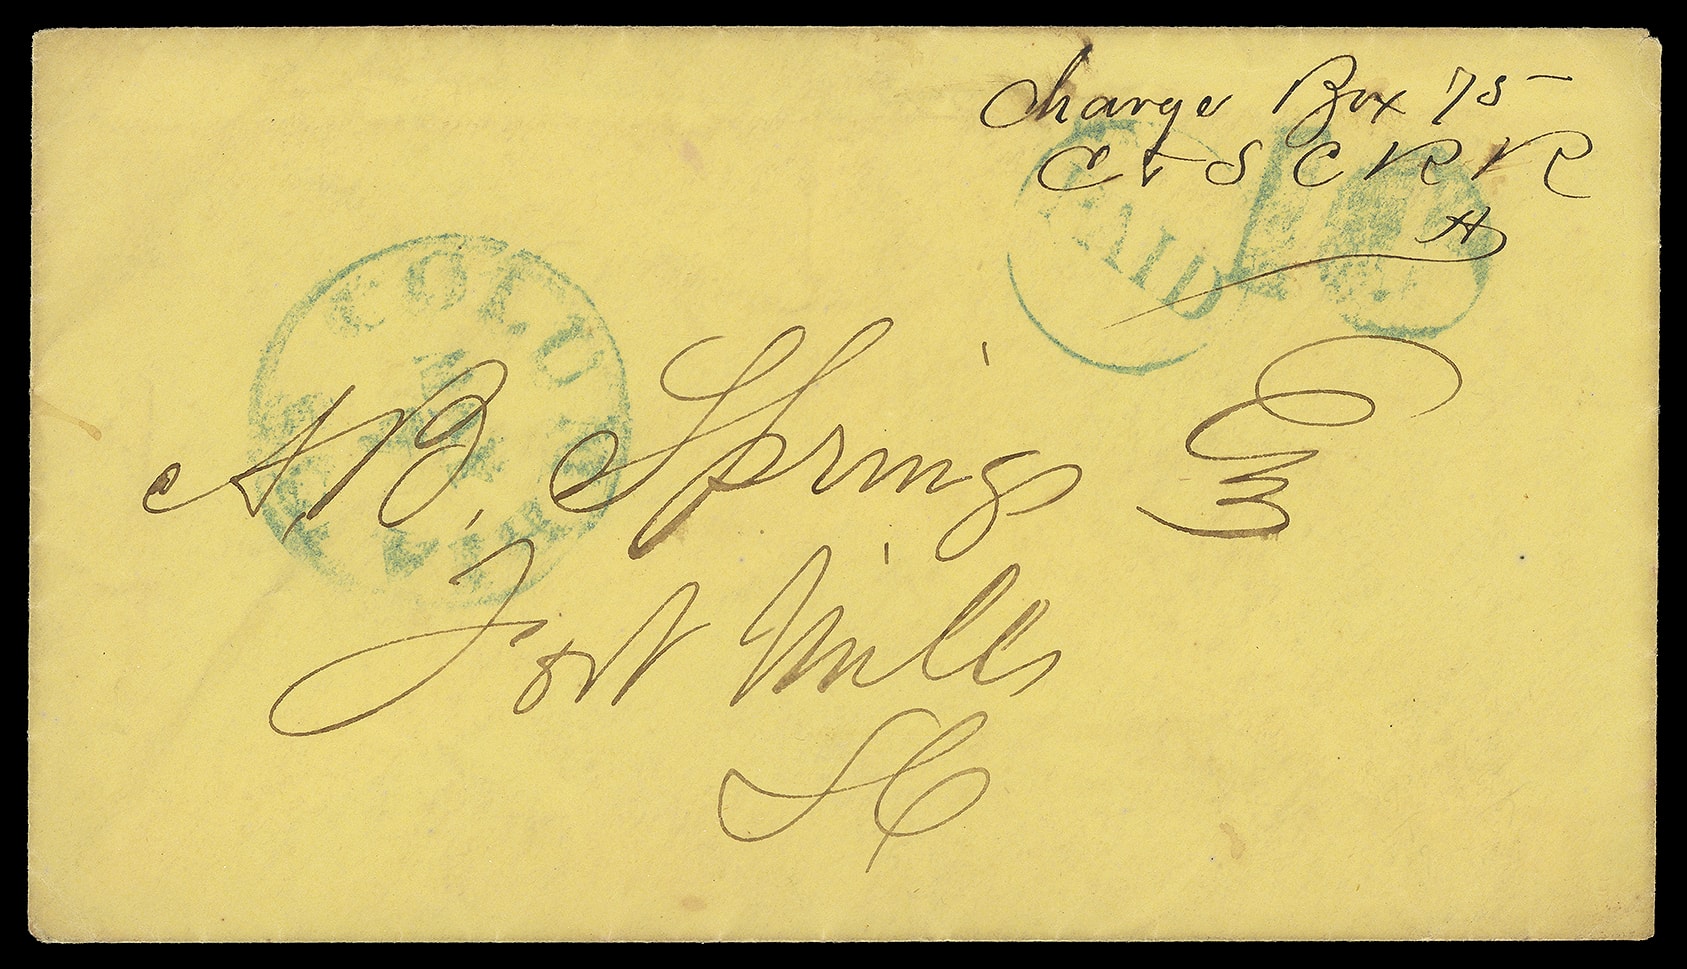 Charge Box 75
C & S C R R
PAID 10
A
COLUMBIA
A. B. Springs Esq
Fort Mills
SC